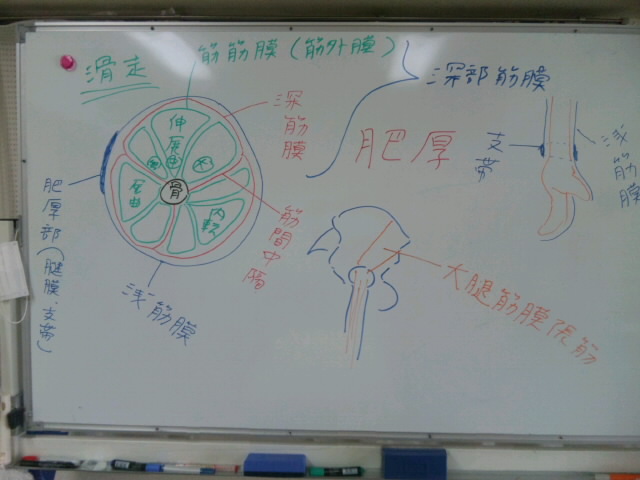 滑走
筋筋膜(筋外膜)
深部筋膜
深筋膜
肥厚
支帯
浅筋膜
伸展
屈曲
骨
内転
筋間中隔
肥厚部(腱膜・支帯)
浅筋膜
大腿筋膜張筋